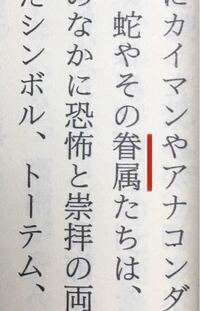 にカイマンやアナコンダ
蛇やその眷属たちは、
のなかに恐怖と崇拝の両
たシンボル、トーテム、